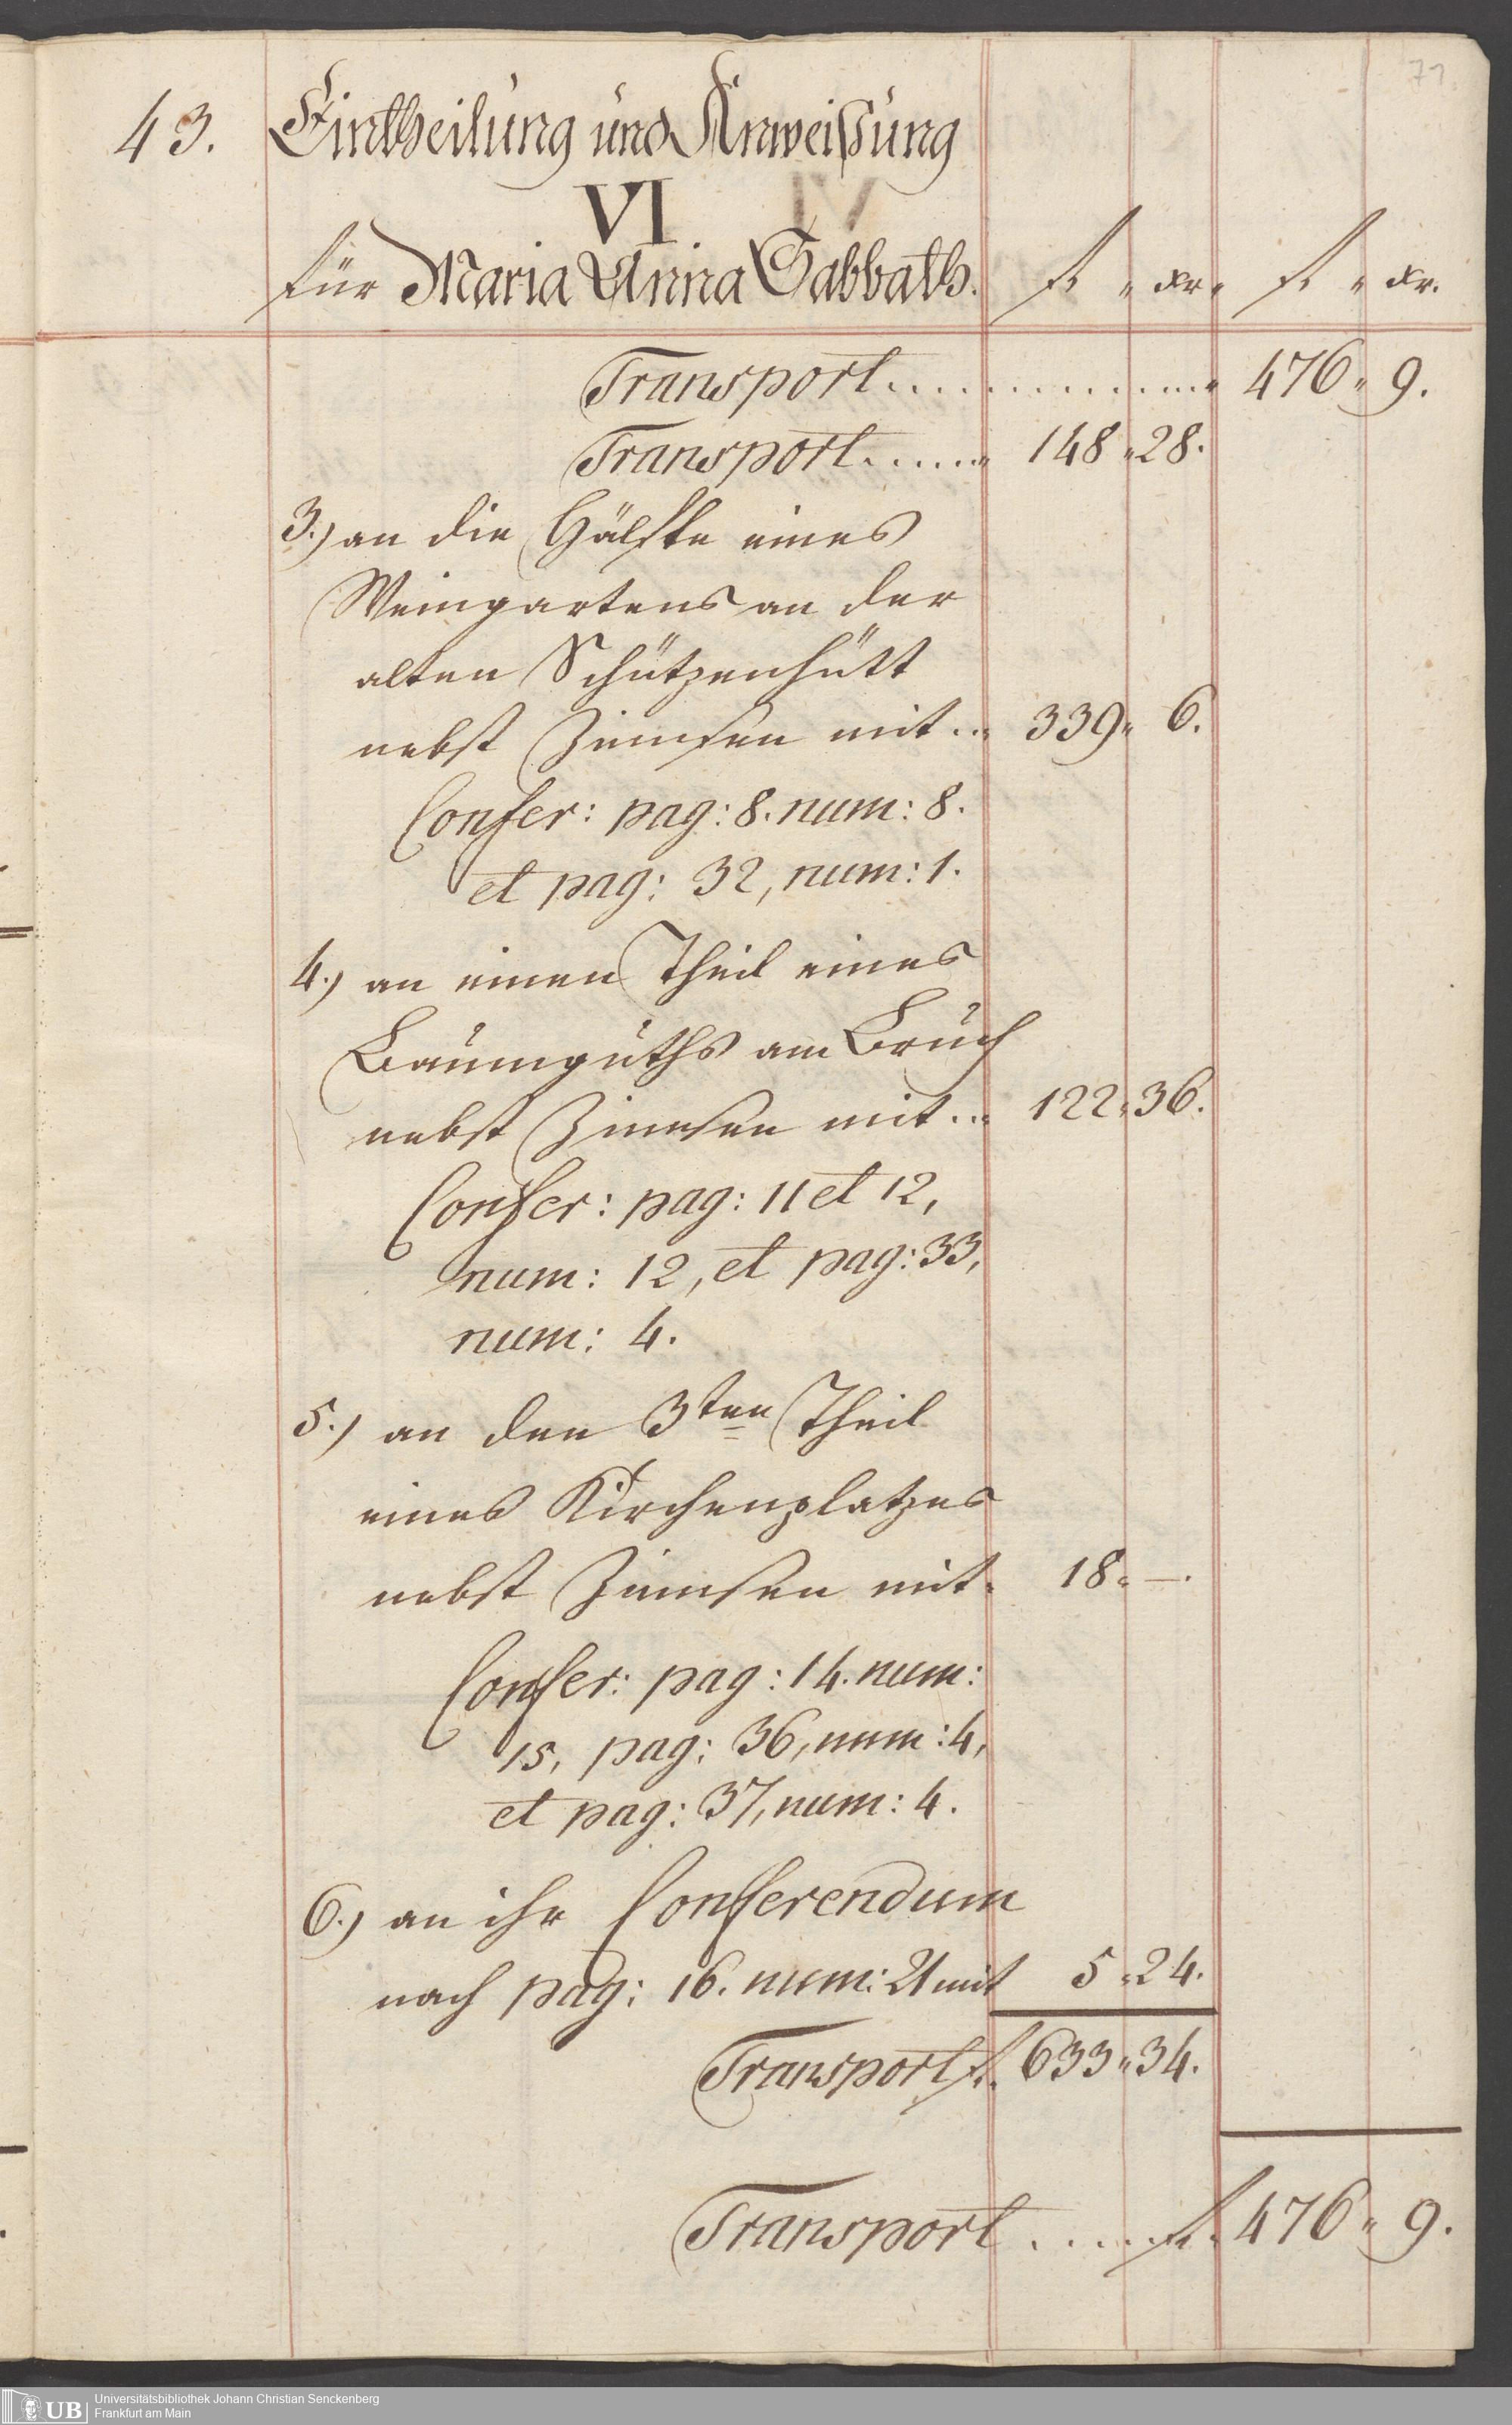 71.
43. Eintheilung und Anweisung
VI IV
für Maria Anna Sabbath. f. " xr. " f. " xr.
Transport . . . . . . . . . . . . " 476 " 9.
Transport . . . . . . " 148 " 28.
3.) an die Hälfte eines
Weingartens an der
alten Schützenhütt
nebst Zinnsen mit .. " 339 " 6.
Confer: pag: 8. num: 8.
et pag: 32, num: 1.
4.) an einen Theil eines
Baumguths am Bruch
nebst Zinnsen mit .. " 122 " 36.
Confer: pag: 11 et 12,
num: 12, et pag: 33,
num: 4.
5.) an den 3ten Theil
eines Kirchenplatzes
nebst Zinnsen mit " 18 " —.
Confer: pag: 14. num:
15, pag: 36, num: 4,
et pag: 37, num: 4.
6.) an ihr Conferendum
nach pag: 16. num: 21 mit 5 " 24.
Transport f. 633 " 34.
Transport . . . . . f. 476 " 9.
UB Universitätsbibliothek Johann Christian Senckenberg
Frankfurt am Main